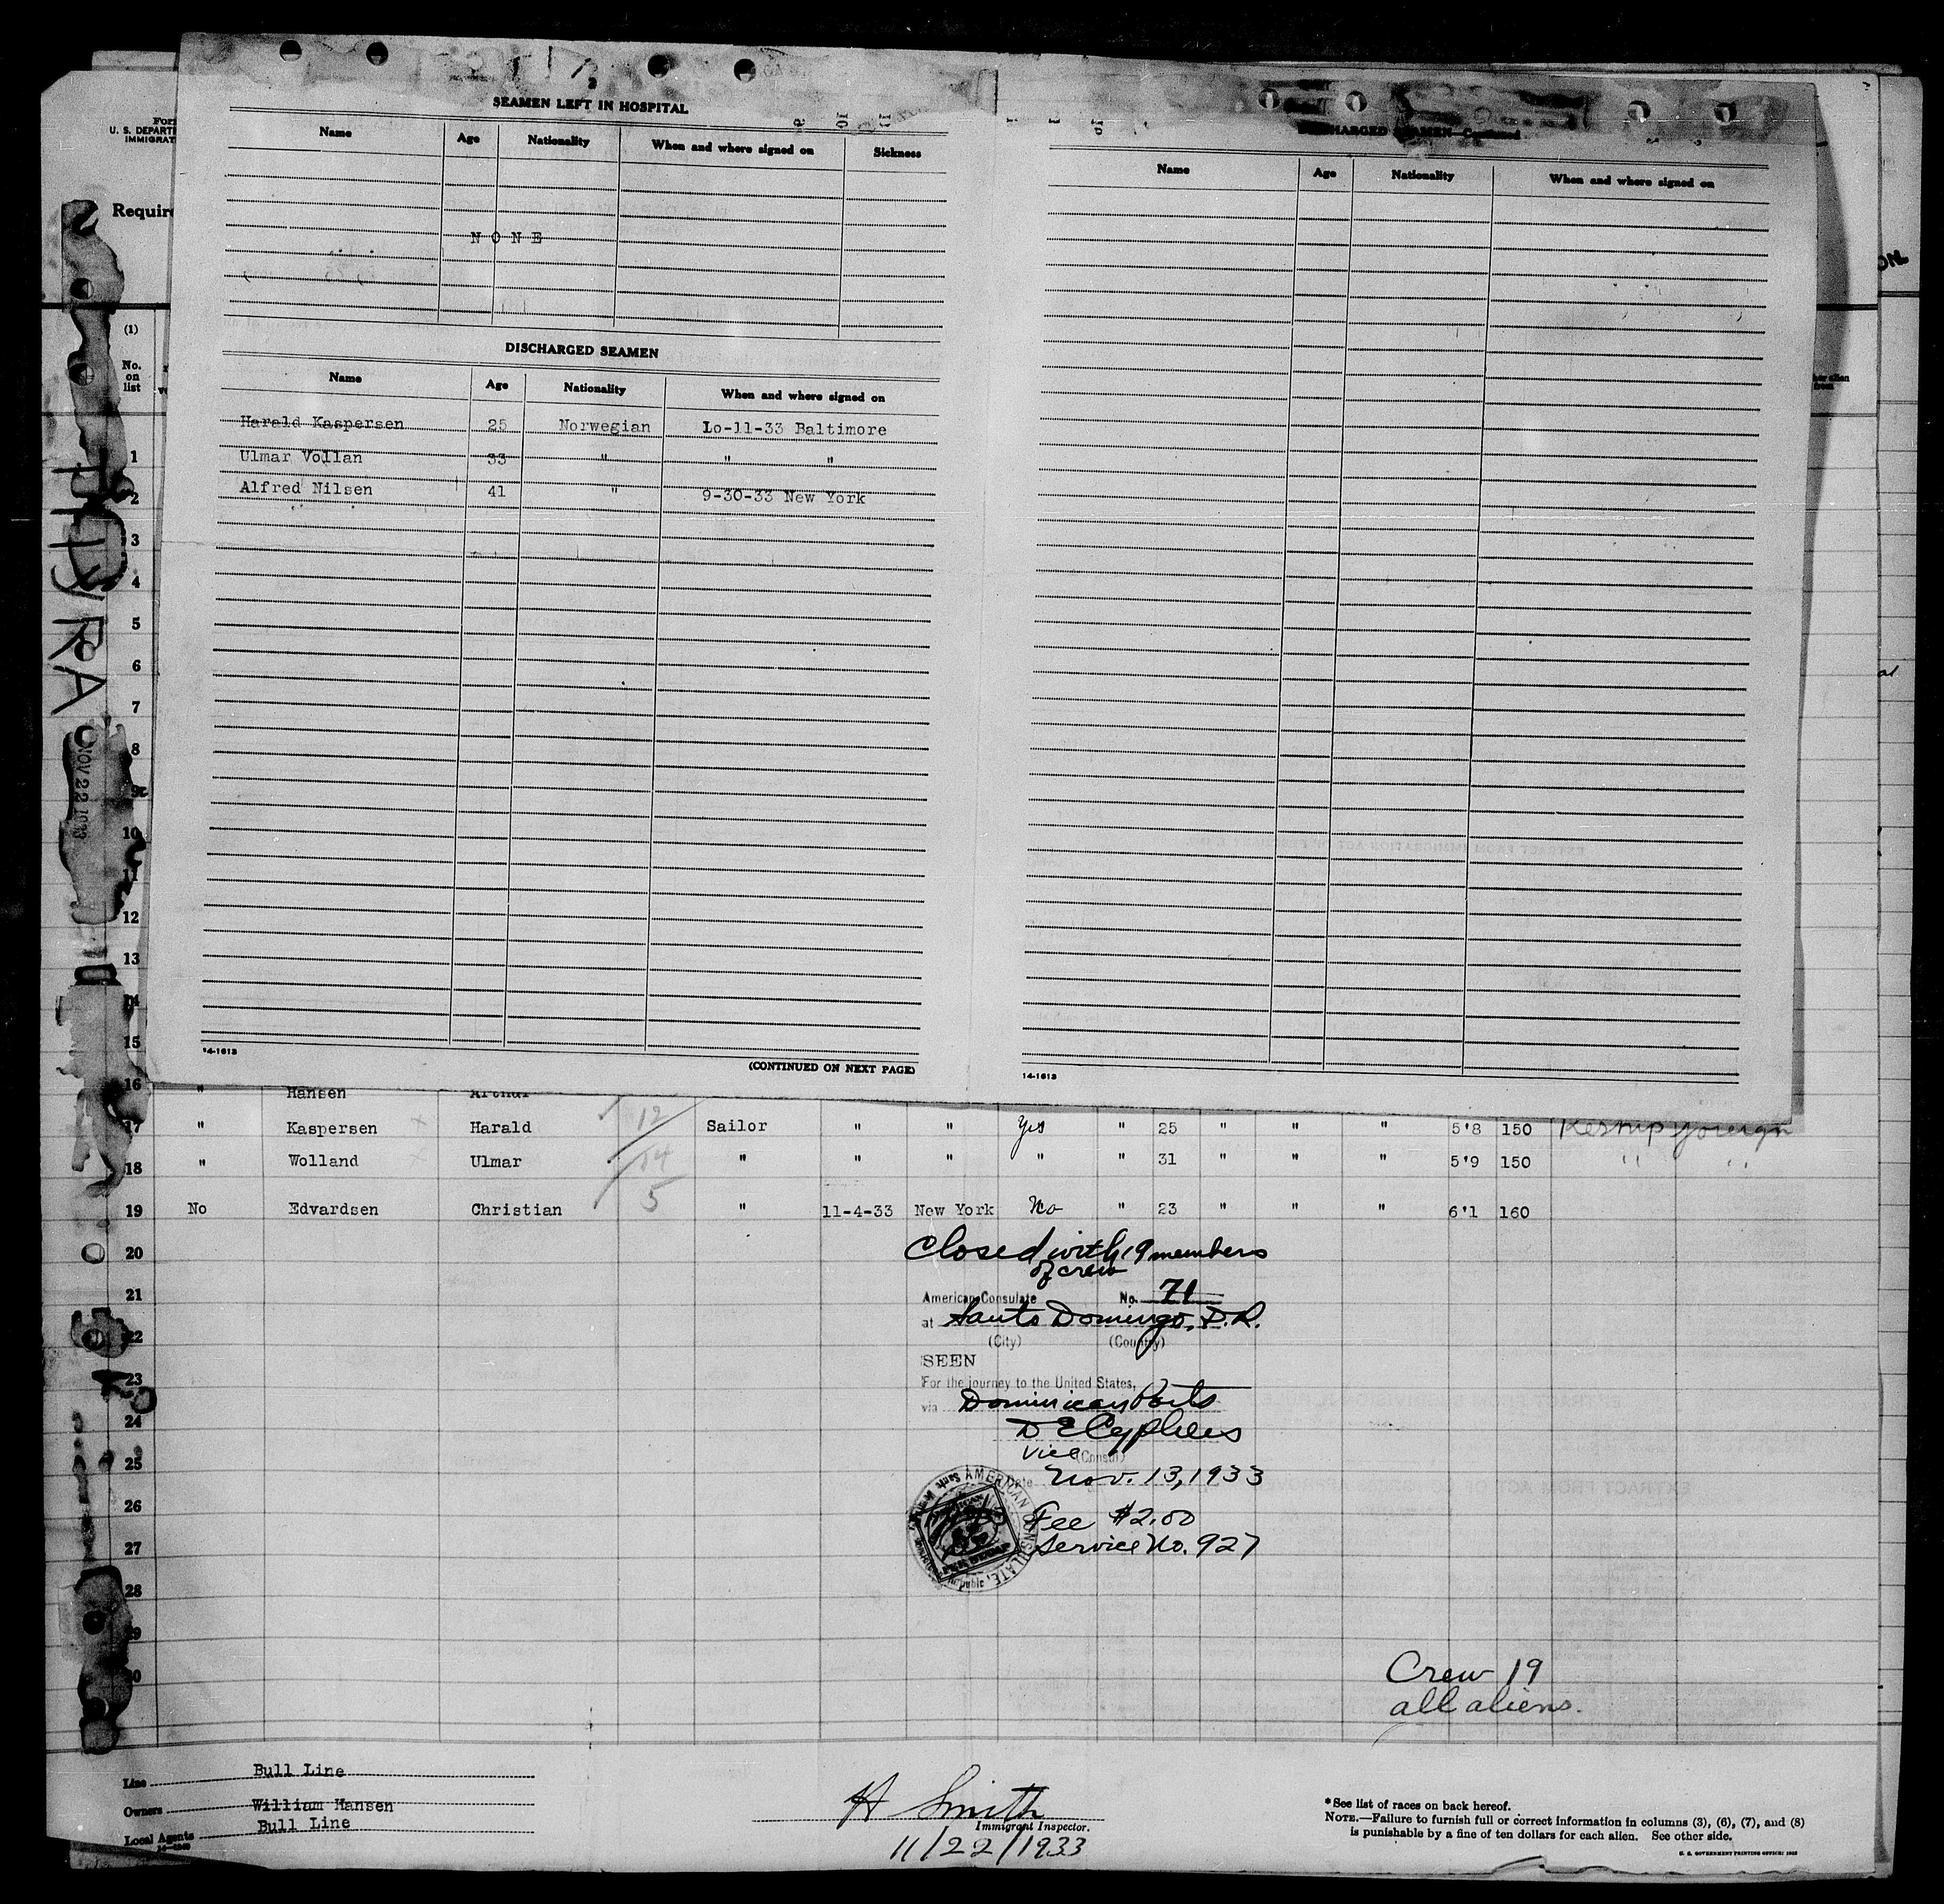 SEAMEN LEFT IN HOSPITAL
Name Age Nationality When and where signed on Sickness
NONE
DISCHARGED SEAMEN
Name Age Nationality When and where signed on
Harald Kaspersen 25 Norwegian Lo-11-33 Baltimore
Ulmar Vollan 33 " " "
Alfred Nilsen 41 " 9-30-33 New York
14-1613
(CONTINUED ON NEXT PAGE)
DISCHARGED SEAMEN—Continued
Name Age Nationality When and where signed on
14-1613
Form
U. S. DEPART
IMMIGRAT
Require
(1)
No.
on
list
THYRA
NOV 22 1933
1
2
3
4
5
6
7
8
9
10
11
12
13
14
15
16 " Hansen Arthur
17 " Kaspersen Harald 12 Sailor " " Yes " 25 " " " 5'8 150
18 " Wolland Ulmar 14 " " " " " 31 " " " 5'9 150 " "
19 No Edvardsen Christian 5 " 11-4-33 New York No " 23 " " " 6'1 160
20
21
22
23
24
25
26
27
28
29
30
Closed with 19 members
of crew
American Consulate No. 71
at Santo Domingo, D.R.
(City) (Country)
SEEN
For the journey to the United States,
via Dominican Ports
Vice (Consul)
Date Nov. 13, 1933
AMERICAN CONSULATE,
Republic
Fee $2.00
Service No. 927
Crew 19
all aliens.
Line Bull Line
Owners William Hansen
Local Agents Bull Line
H Smith
Immigrant Inspector.
11/22/1933
*See list of races on back hereof.
NOTE.—Failure to furnish full or correct information in columns (3), (6), (7), and (8)
is punishable by a fine of ten dollars for each alien. See other side.